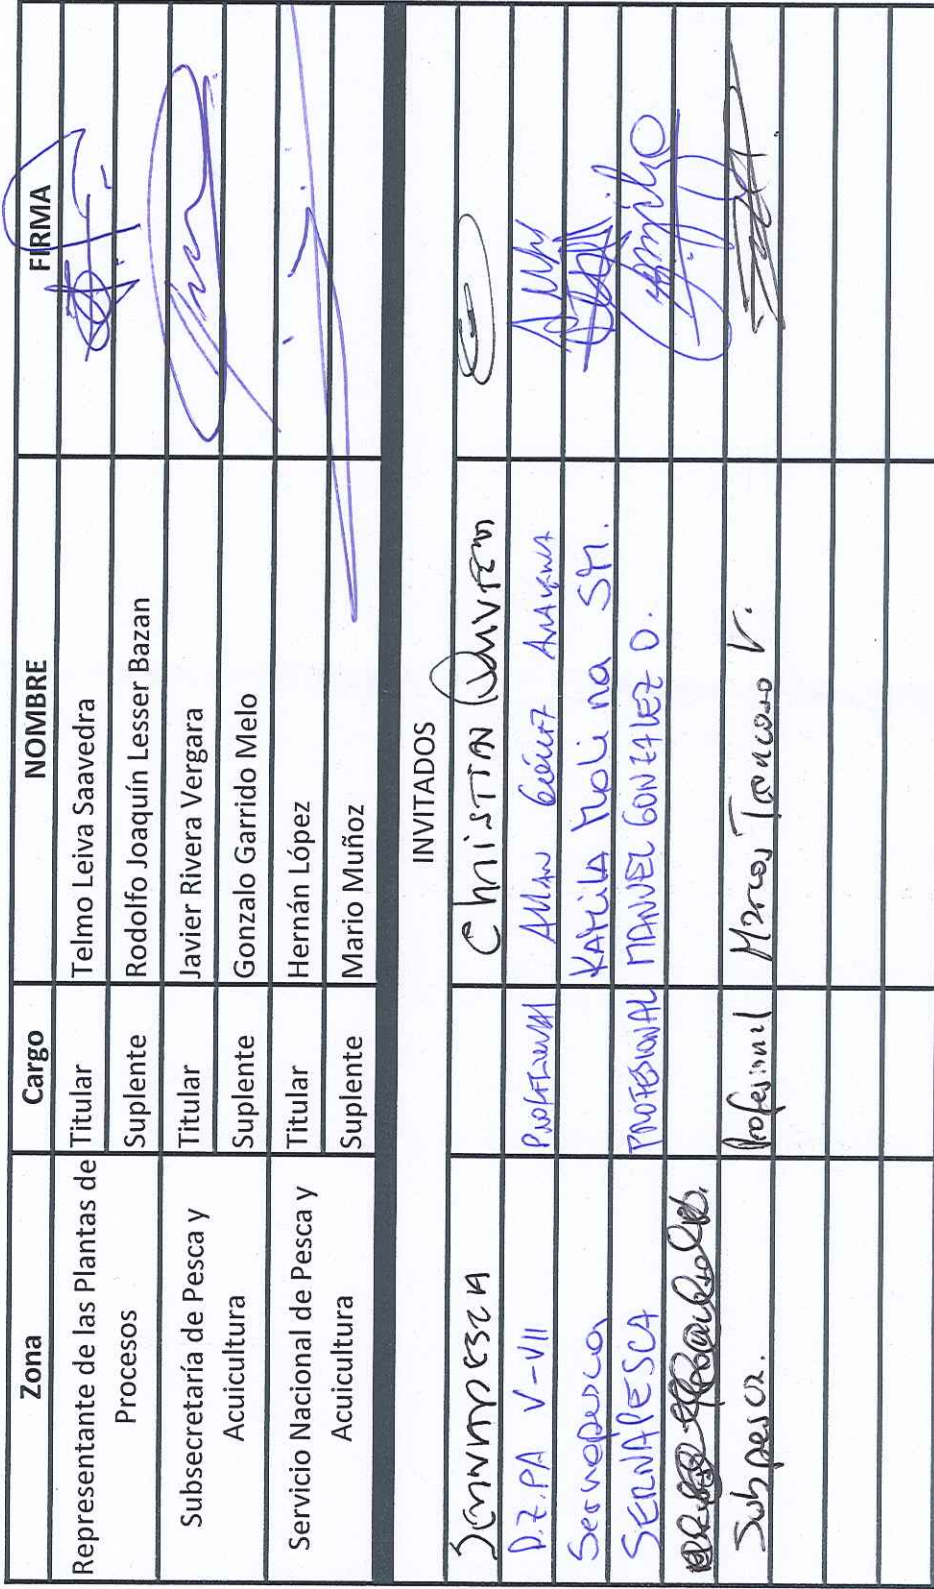 Zona Cargo NOMBRE FIRMA
Representante de las Plantas de Procesos Titular Telmo Leiva Saavedra
Suplente Rodolfo Joaquín Lesser Bazan
Subsecretaría de Pesca y Acuicultura Titular Javier Rivera Vergara
Suplente Gonzalo Garrido Melo
Servicio Nacional de Pesca y Acuicultura Titular Hernán López
Suplente Mario Muñoz
INVITADOS
Christian
D.Z.PA V-VII Profesional
Sernapesca Kamila Molina SM.
SERNAPESCA PROFESIONAL MANUEL GONZALEZ O.
Subpesca. Profesional Marcos Troncoso V.